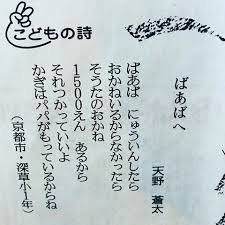 こどもの詩
ばあばへ
天野 蒼太
ばあば にゅういんしたら
おかねいるからなかったら
そうたのおかね
1500えん あるから
それつかっていいよ
かぎはパパがもっているからね
(京都市・深草小1年)